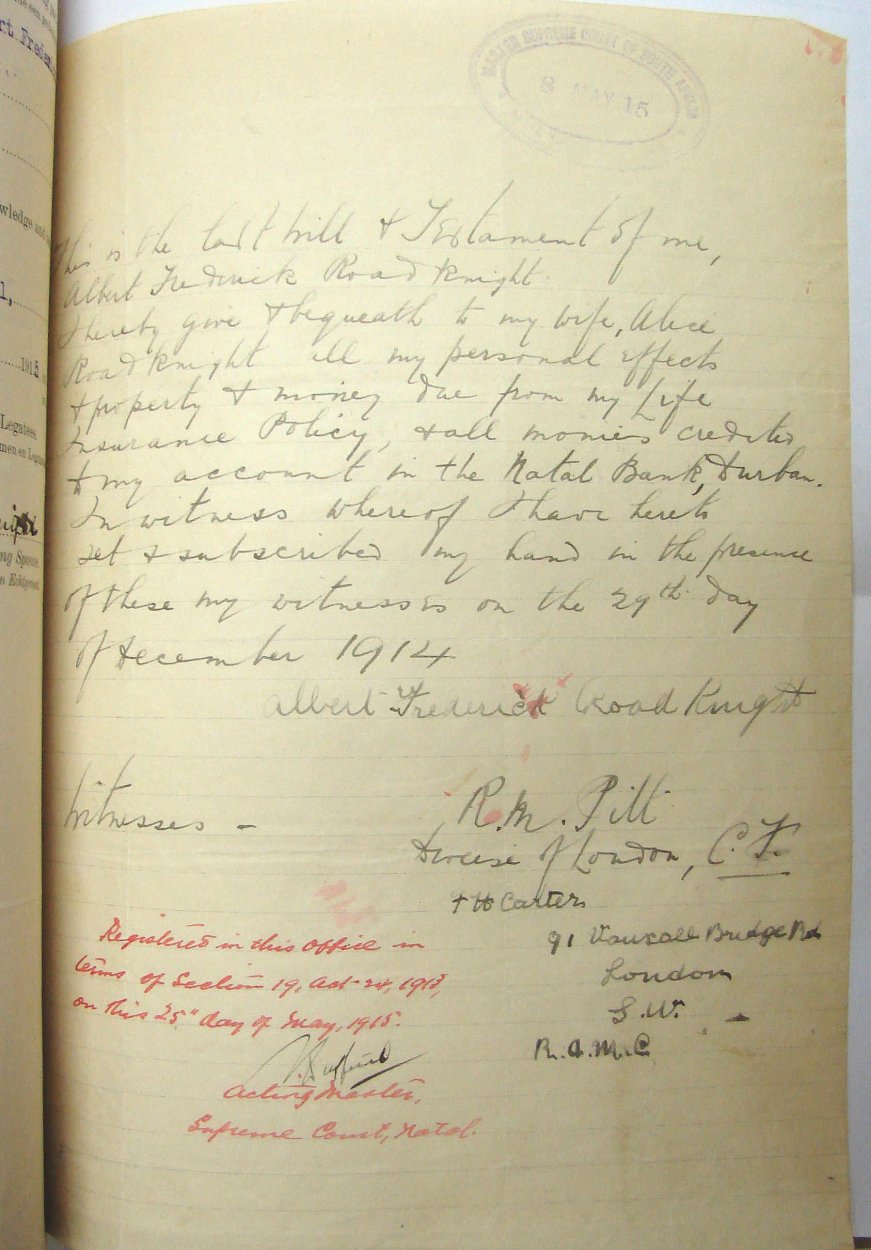 rt. Freder
wledge and
l,
1915
Legatees.
men en Legat
ng Spouse.
MASTER SUPREME COURT OF SOUTH AFRICA
8 MAY 15
This is the last Will & Testament of me,
Albert Frederick Road Knight.
I hereby give & bequeath to my wife, Alice
Road Knight all my personal effects
& property & money due from my Life
Insurance Policy, & all monies credited
to my account in the Natal Bank, Durban.
In witness whereof I have hereto
set & subscribed my hand in the presence
of these my witnesses on the 29th. day
of December 1914
Albert Frederick Road Knight
Witnesses - R.M. Pitt
Diocese of London, C.F.
Carters
91 Vauxall Bridge Rd
London
S.W. -
R.A.M.C
Registered in this Office in
terms of Section 19, Act 24, 1913,
on this 25" day of May, 1915.
Acting Master,
Supreme Court, Natal.